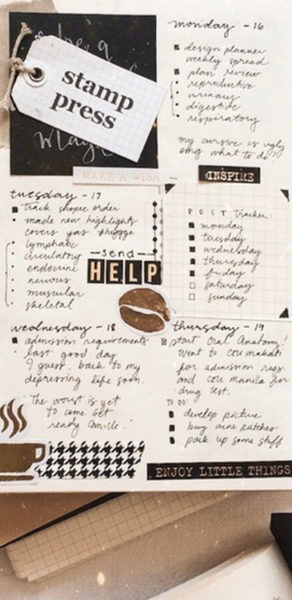 stamp
press
MAKE A WISH
monday - 16
design planner
weekly spread
plan review
reproductive
urinary
digestive
respiratory
my cursive is ugly
omg what to do?!
INSPIRE
tuesday - 17
track shopee order
made new highlights
covers yas shopee
lymphatic
circulatory
endocrine
nervous
muscular
skeletal
send
HELP
POST Tracker
monday
tuesday
wednesday
thursday
friday
saturday
sunday
wednesday - 18
admission requirements
last good day
I guess. back to my
depressing life soon.
The worst is yet
to come. Get
ready
thursday - 19
start Oral Anatomy!
went to CEU makati
for admission reqs
and CEU manila for
drug test.
TO DO:
develop picture
buy acne patches
pack up some stuff
ENJOY LITTLE THINGS